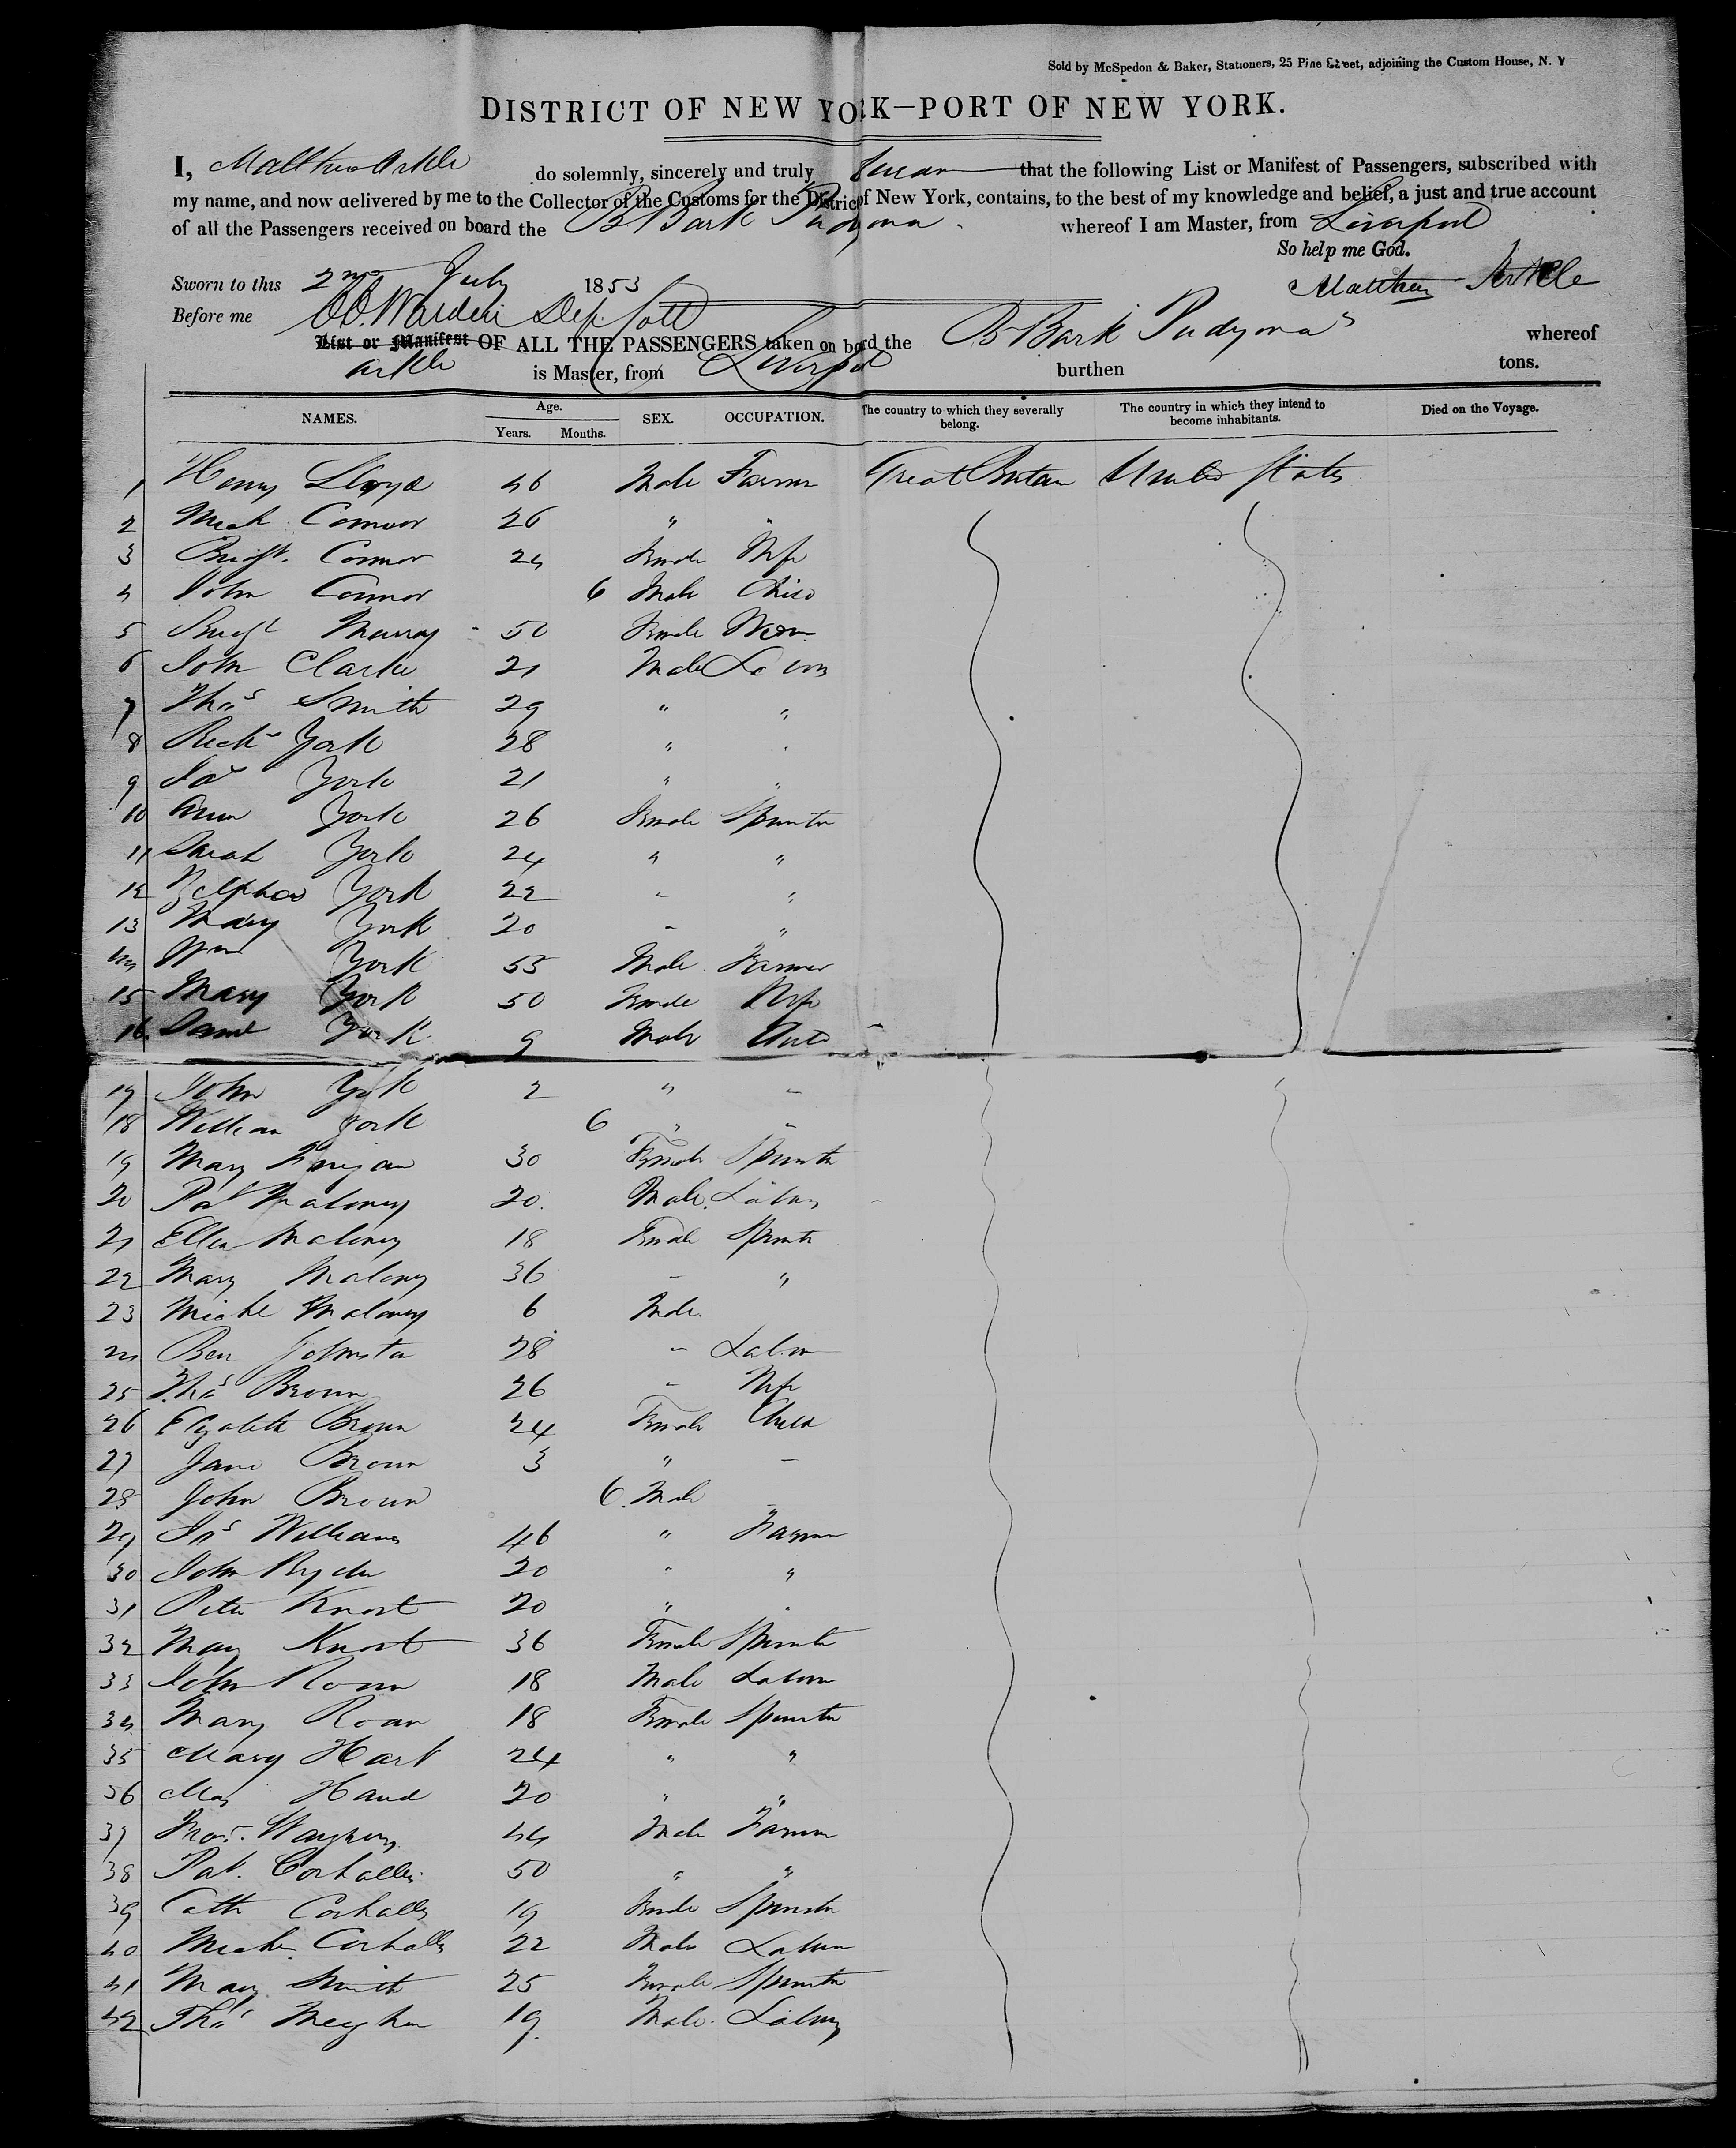 Sold by McSpedon & Baker, Stationers, 25 Pine Street, adjoining the Custom House, N. Y
DISTRICT OF NEW YORK—PORT OF NEW YORK.
I, Matthew Arkle do solemnly, sincerely and truly swear that the following List or Manifest of Passengers, subscribed with
my name, and now delivered by me to the Collector of the Customs for the District of New York, contains, to the best of my knowledge and belief, a just and true account
of all the Passengers received on board the B Bark whereof I am Master, from Liverpool
So help me God.
Sworn to this 2nd July 1853 Matthew Arkle
Before me Dep Coll
List or Manifest OF ALL THE PASSENGERS taken on board the B Bark whereof
Arkle is Master, from Liverpool burthen tons.
NAMES. Age. Years. Months. SEX. OCCUPATION. The country to which they severally belong. The country in which they intend to become inhabitants. Died on the Voyage.
1 Henry Lloyd 46 Male Farmer Great Britain United States
2 Mich Connor 26 " "
3 Bridgt. Connor 24 Female Wife
4 John Connor 6 Male Child
5 Bridgt Murray 50 Female
6 John Clarke 21 Male Labour
7 Thos Smith 29 " "
8 Richd York 28 " "
9 York 21 " "
10 Ann York 26 Female Spinster
11 Sarah York 24 " "
12 York 22 " "
13 Mary York 20 " "
14 Wm York 55 Male Farmer
15 Mary York 50 Female Wife
16 Saml York 9 Male Child
17 John York 2 " "
18 William York 6 " "
19 Mary 30 Female Spinster
20 Pat Maloney 20 Male Labour
21 Ellen Maloney 18 Female Spinster
22 Mary Malony 36 " "
23 Michl Maloney 6 Male
24 Ben Johnston 28 " Labour
25 Thos Brown 26 " Wife
26 Elizabeth Brown 24 Female Child
27 Jane Brown 3 " "
28 John Brown 6 Male "
29 Jas Williams 46 " Farmer
30 John Ryder 20 " "
31 Peter 20 " "
32 Mary 36 Female Spinster
33 John Roan 18 Male Labour
34 Mary Roan 18 Female Spinster
35 Mary Hart 24 " "
36 Hand 20 " "
37 44 Male Farmer
38 Pat. Corhalls 50 " "
39 Cath Corhalls 19 Female Spinster
40 Mich Corhalls 22 Male Labour
41 Mary Smith 25 Female Spinster
42 Thos Meighan 19 Male Labour